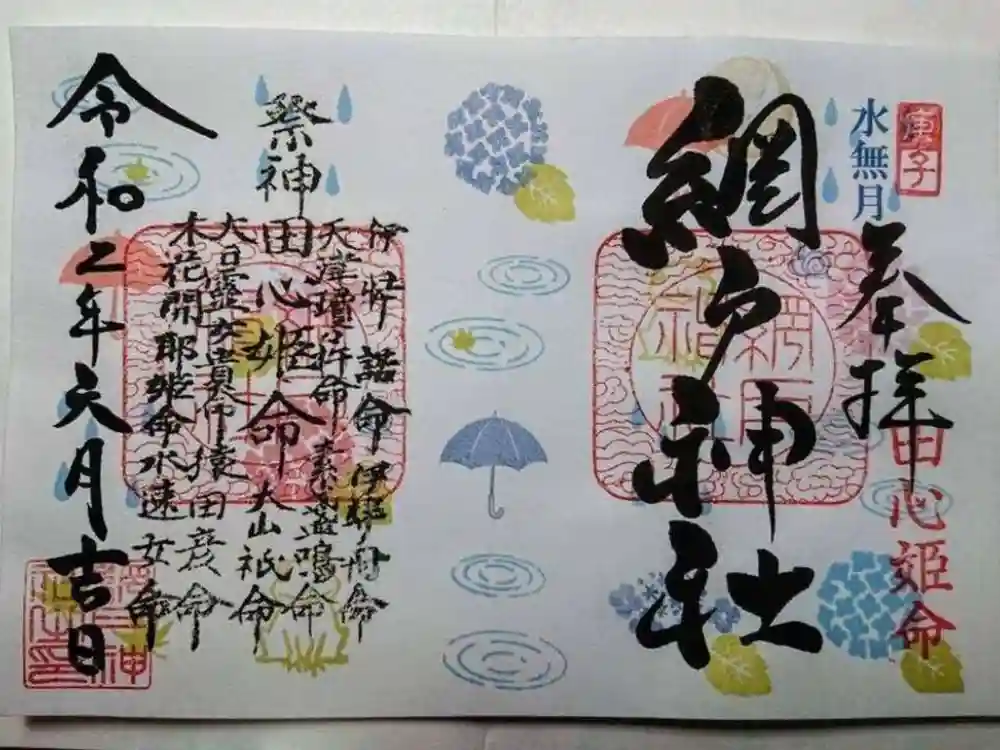 庚子
水無月
奉拝
田心姫命
網戸神社
祭神
伊弉諾命 伊弉冉命
天津瓊々杵命 素盞鳴命
田心姫命 大山祇命
大日孁女貴命 猿田彦命
木花開耶姫命 水速女命
令和二年六月吉日